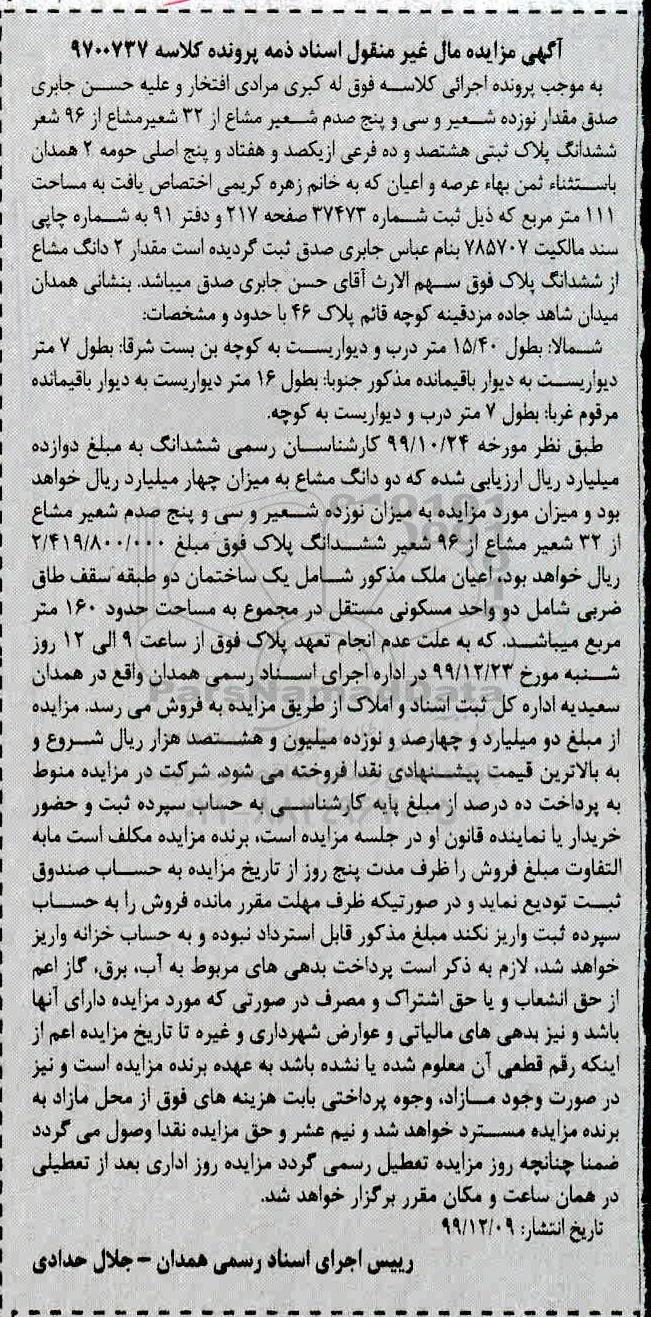 آگهی مزایده مال غیر منقول اسناد ذمه پرونده کلاسه ۹۷۰۰۷۳۷
به موجب پرونده اجرائی کلاسه فوق له کبری مرادی افتخار و علیه حسن جابری
صدق مقدار نوزده شعیر و سی و پنج صدم شعیر مشاع از ۳۲ شعیرمشاع از ۹۶ شعر
ششدانگ پلاک ثبتی هشتصد و ده فرعی ازیکصد و هفتاد و پنج اصلی حومه ۲ همدان
باستثناء ثمن بهاء عرصه و اعیان که به خانم زهره کریمی اختصاص یافت به مساحت
۱۱۱ متر مربع که ذیل ثبت شماره ۳۷۴۷۳ صفحه ۲۱۷ و دفتر ۹۱ به شماره چاپی
سند مالکیت ۷۸۵۷۰۷ بنام عباس جابری صدق ثبت گردیده است مقدار ۲ دانگ مشاع
از ششدانگ پلاک فوق سهم الارث آقای حسن جابری صدق میباشد. بنشانی همدان
میدان شاهد جاده مزدقینه کوچه قائم پلاک ۴۶ با حدود و مشخصات:
شمالا: بطول ۱۵/۴۰ متر درب و دیواریست به کوچه بن بست شرقا: بطول ۷ متر
دیواریست به دیوار باقیمانده مذکور جنوبا: بطول ۱۶ متر دیواریست به دیوار باقیمانده
مرقوم غربا: بطول ۷ متر درب و دیواریست به کوچه.
طبق نظر مورخه ۹۹/۱۰/۲۴ کارشناسان رسمی ششدانگ به مبلغ دوازده
میلیارد ریال ارزیابی شده که دو دانگ مشاع به میزان چهار میلیارد ریال خواهد
بود و میزان مورد مزایده به میزان نوزده شعیر و سی و پنج صدم شعیر مشاع
از ۳۲ شعیر مشاع از ۹۶ شعیر ششدانگ پلاک فوق مبلغ ۲/۴۱۹/۸۰۰/۰۰۰
ریال خواهد بود، اعیان ملک مذکور شامل یک ساختمان دو طبقه سقف طاق
ضربی شامل دو واحد مسکونی مستقل در مجموع به مساحت حدود ۱۶۰ متر
مربع میباشد. که به علت عدم انجام تعهد پلاک فوق از ساعت ۹ الی ۱۲ روز
شنبه مورخ ۹۹/۱۲/۲۳ در اداره اجرای اسناد رسمی همدان واقع در همدان
سعیدیه اداره کل ثبت اسناد و املاک از طریق مزایده به فروش می رسد. مزایده
از مبلغ دو میلیارد و چهارصد و نوزده میلیون و هشتصد هزار ریال شروع و
به بالاترین قیمت پیشنهادی نقدا فروخته می شود. شرکت در مزایده منوط
به پرداخت ده درصد از مبلغ پایه کارشناسی به حساب سپرده ثبت و حضور
خریدار یا نماینده قانون او در جلسه مزایده است، برنده مزایده مکلف است مابه
التفاوت مبلغ فروش را ظرف مدت پنج روز از تاریخ مزایده به حساب صندوق
ثبت تودیع نماید و در صورتیکه ظرف مهلت مقرر مانده فروش را به حساب
سپرده ثبت واریز نکند مبلغ مذکور قابل استرداد نبوده و به حساب خزانه واریز
خواهد شد، لازم به ذکر است پرداخت بدهی های مربوط به آب، برق، گاز اعم
از حق انشعاب و یا حق اشتراک و مصرف در صورتی که مورد مزایده دارای آنها
باشد و نیز بدهی های مالیاتی و عوارض شهرداری و غیره تا تاریخ مزایده اعم از
اینکه رقم قطعی آن معلوم شده یا نشده باشد به عهده برنده مزایده است و نیز
در صورت وجود مازاد، وجوه پرداختی بابت هزینه های فوق از محل مازاد به
برنده مزایده مسترد خواهد شد و نیم عشر و حق مزایده نقدا وصول می گردد
ضمنا چنانچه روز مزایده تعطیل رسمی گردد مزایده روز اداری بعد از تعطیلی
در همان ساعت و مکان مقرر برگزار خواهد شد.
تاریخ انتشار: ۹۹/۱۲/۰۹
رییس اجرای اسناد رسمی همدان - جلال حدادی
ParsNamadData